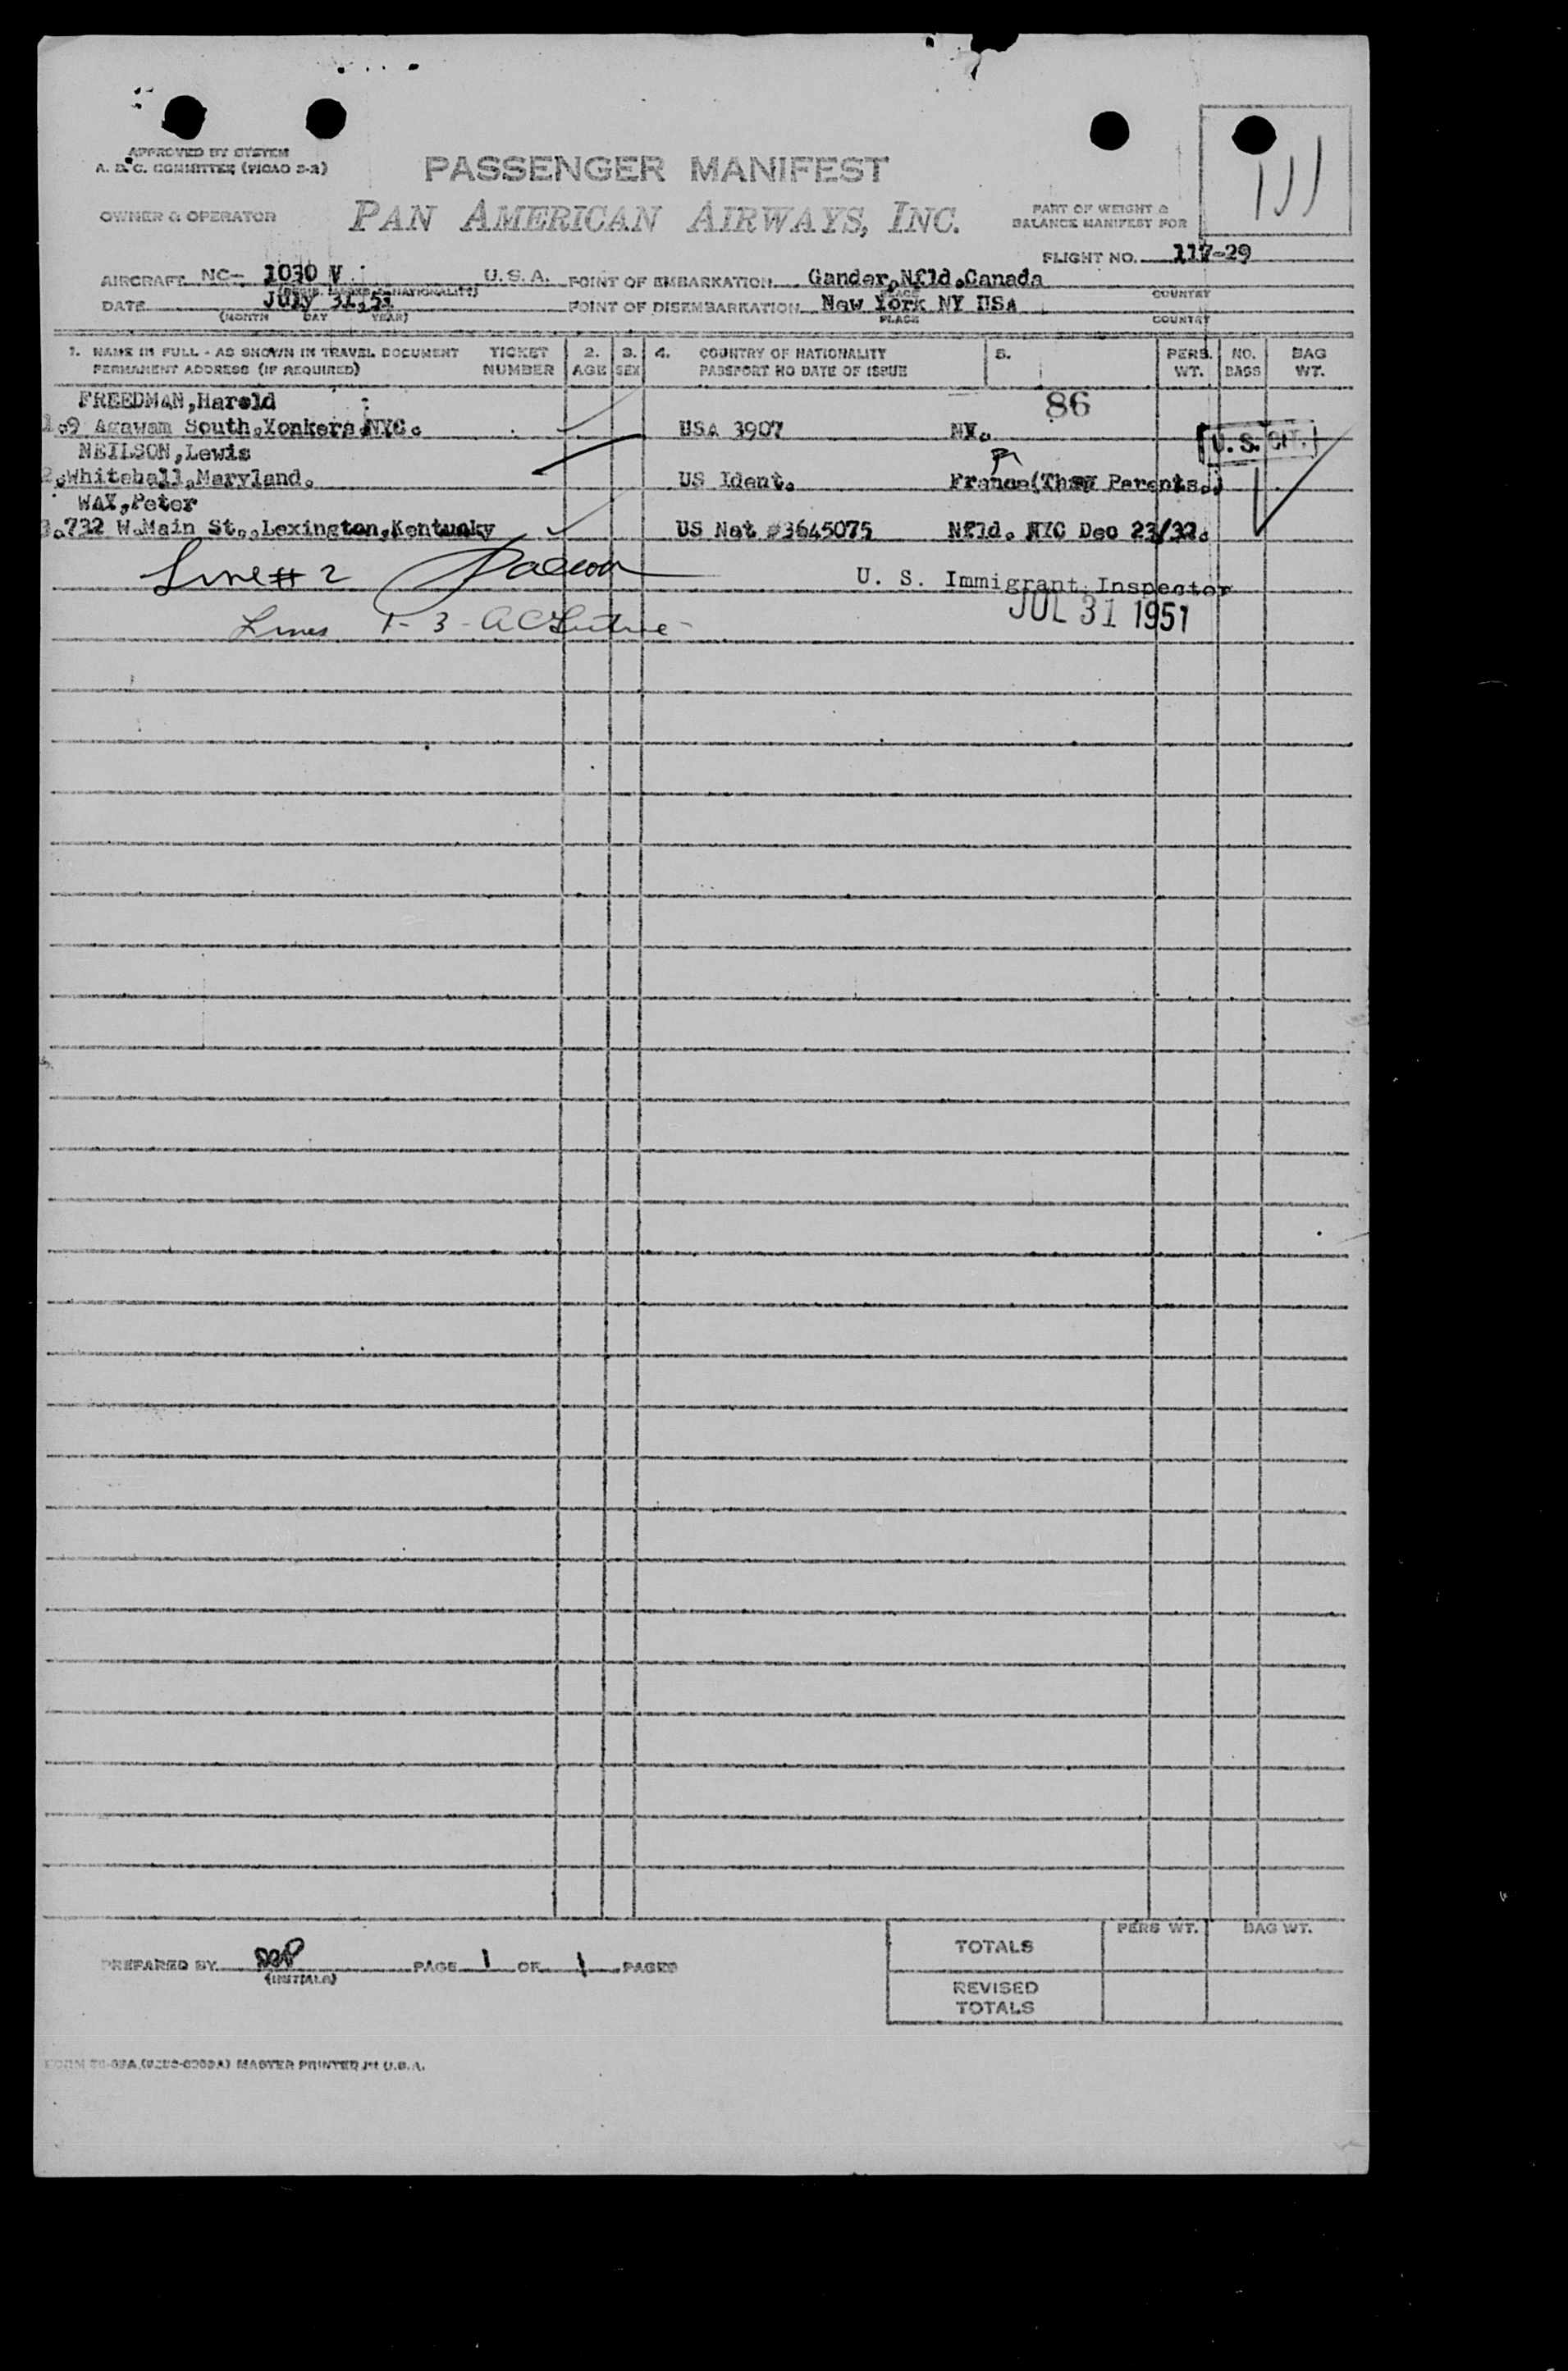 APPROVED BY SYSTEM
A. D. C. COMMITTEE (PICAO S-2)
PASSENGER MANIFEST
OWNER & OPERATOR
PAN AMERICAN AIRWAYS, INC.
PART OF WEIGHT &
BALANCE MANIFEST FOR
FLIGHT NO. 117-29
AIRCRAFT NC- 1030 V U.S.A. POINT OF EMBARKATION Gander,Nfld.Canada
DATE July 31,51 POINT OF DISEMBARKATION New York NY USA
(MONTH DAY YEAR) PLACE COUNTRY
1. NAME IN FULL - AS SHOWN IN TRAVEL DOCUMENT TICKET 2. 3. 4. COUNTRY OF NATIONALITY 5. PERS. NO. BAG
PERMANENT ADDRESS (IF REQUIRED) NUMBER AGE SEX PASSPORT NO DATE OF ISSUE WT. BAGS WT.
FREEDMAN,Harold 86
1.9 Agawam South.Yonkers NYC. USA 3907 NY. U.S. CIT.
NEILSON,Lewis
2.Whitehall,Maryland. US Ident. France(Thru Parents.)
WAX,Peter
3.732 W.Main St.,Lexington,Kentucky US Nat #3645075 Nfld. NYC Dec 23/32.
Line # 2 U. S. Immigrant Inspector
JUL 31 1951
Lines 1-3-
PREPARED BY PAGE 1 OF 1 PAGES
(INITIALS)
PERS WT. BAG WT.
TOTALS
REVISED
TOTALS
MASTER PRINTED IN U.S.A.